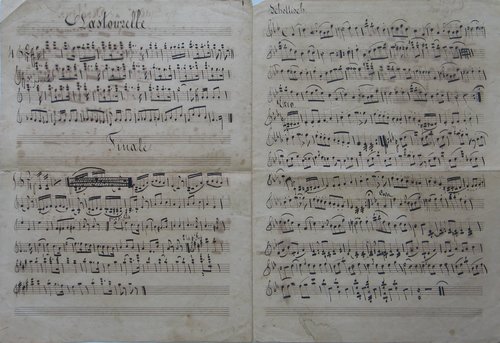 Pastourelle
4
Finale
Schottisch.